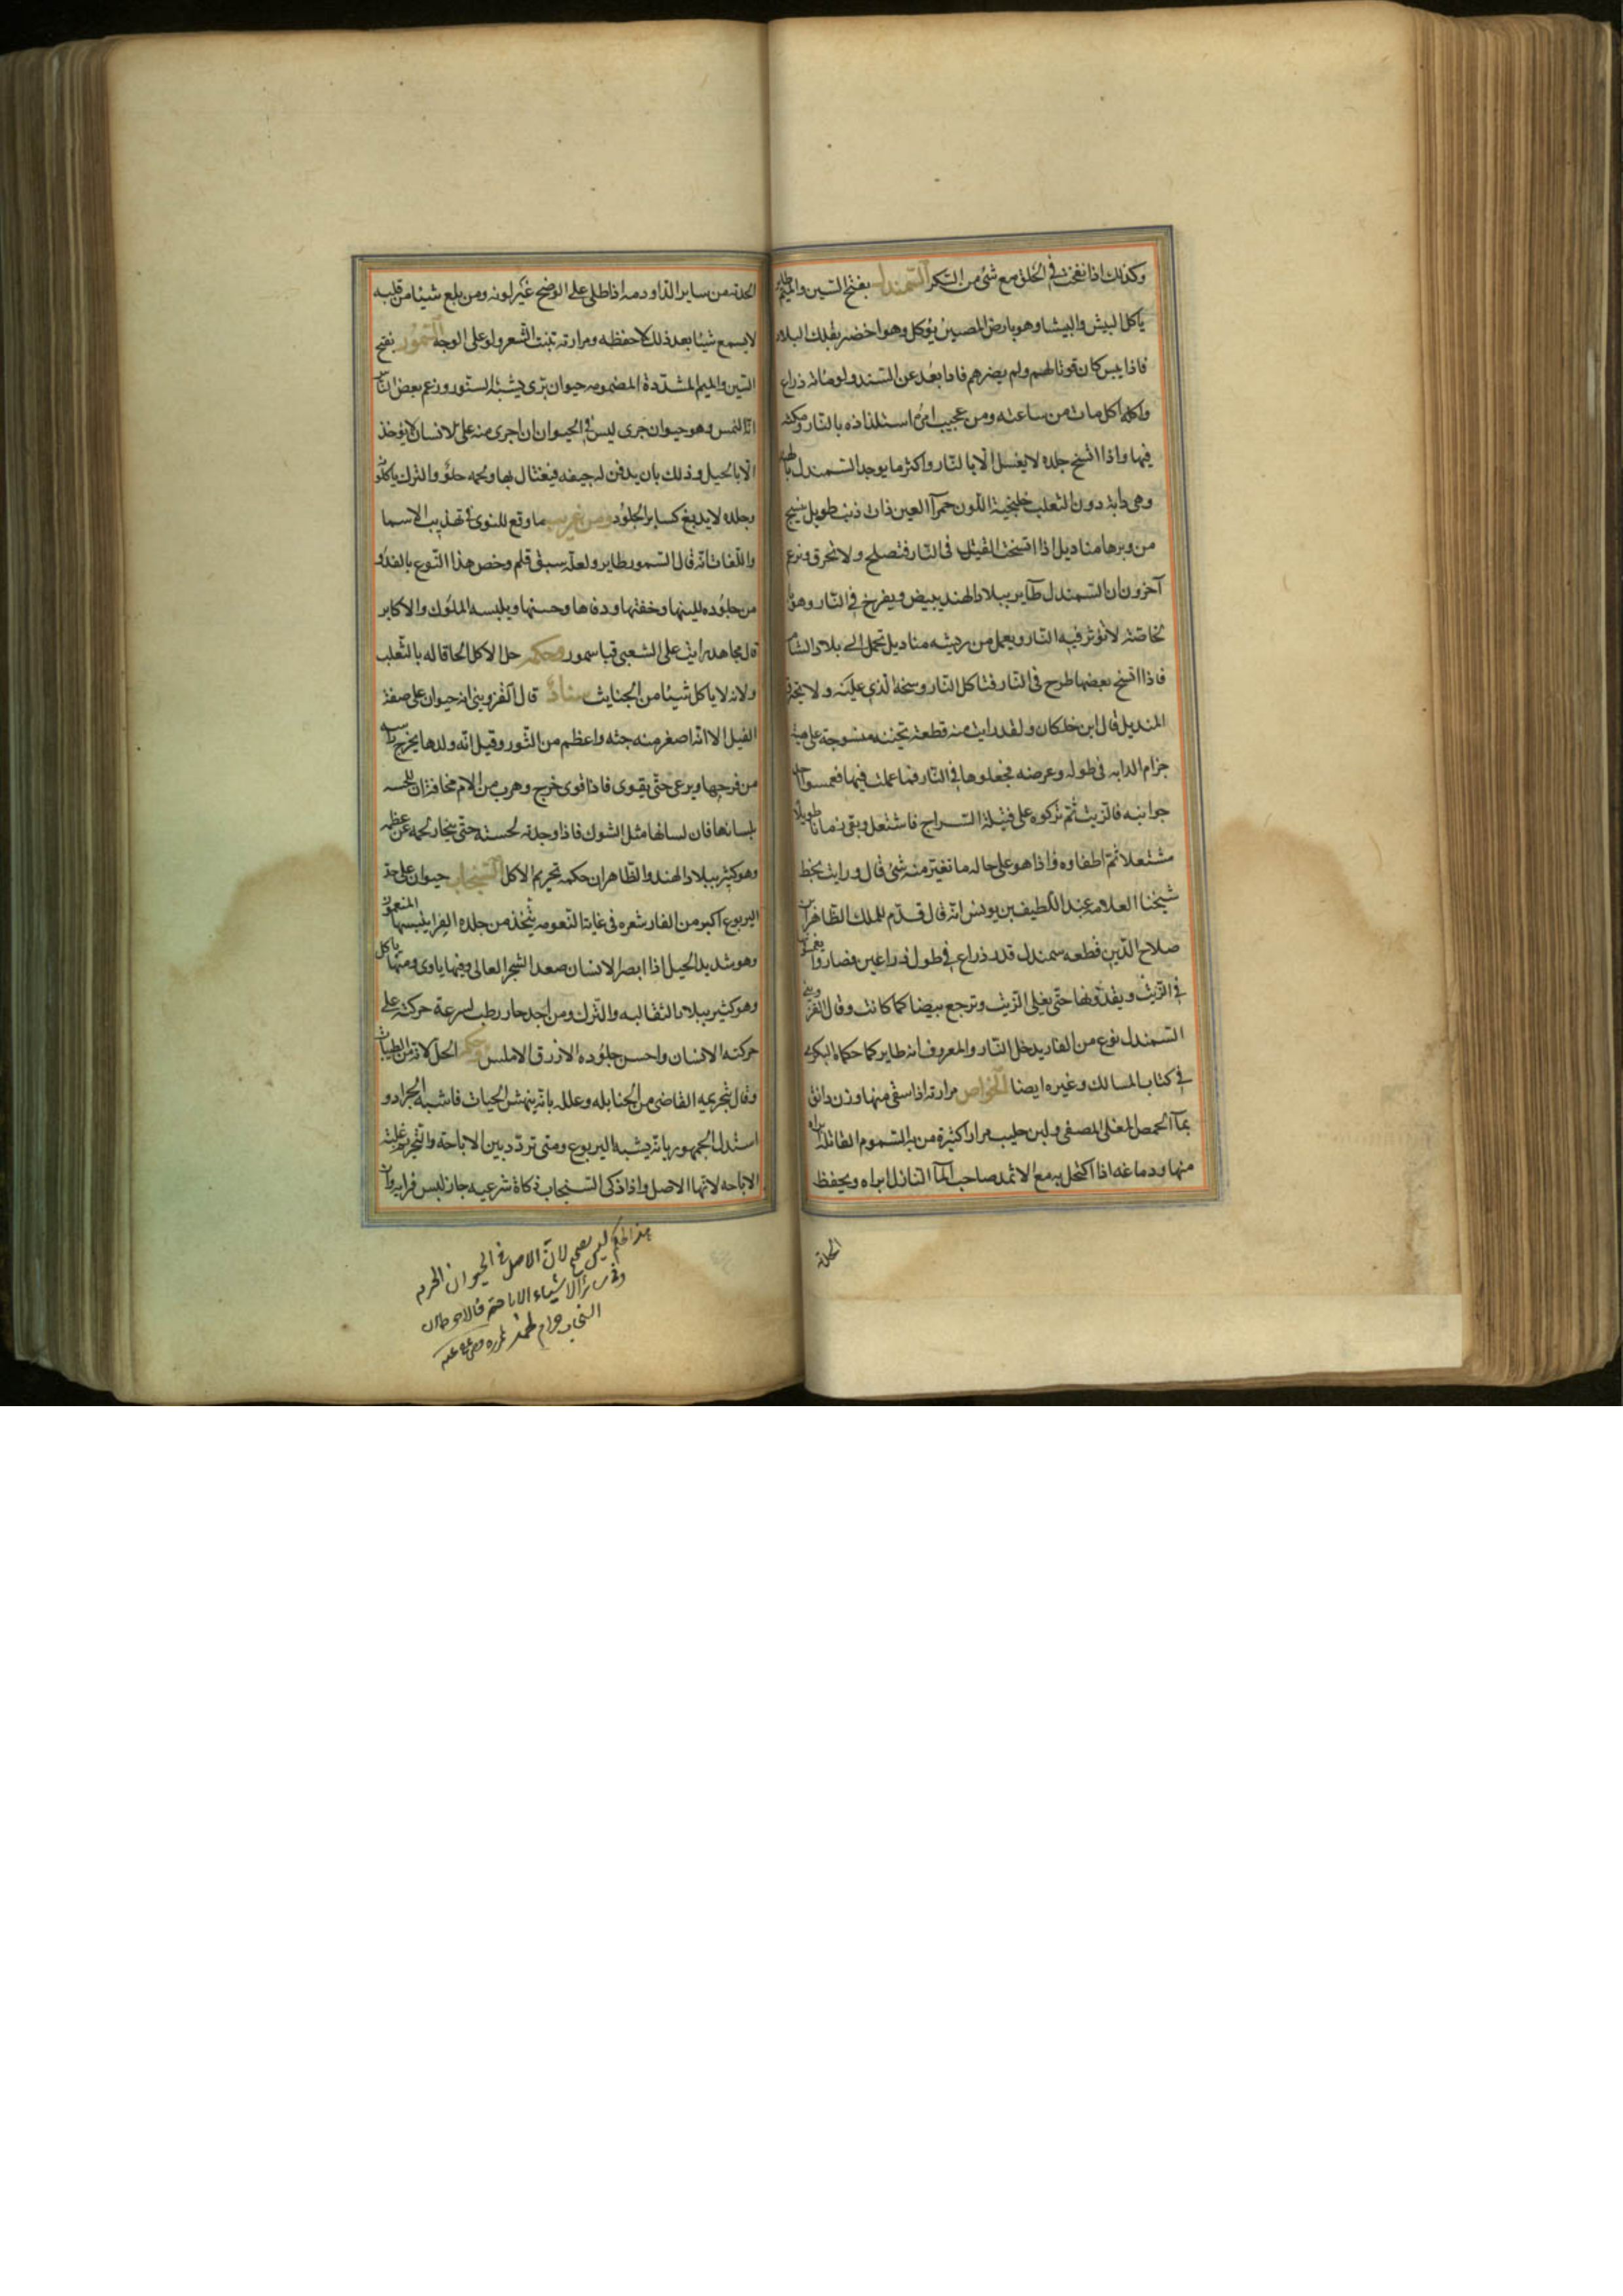 وكذلك اذا نفخت في الحلق مع شئ من السكر السمندل بفتح السين والميم طاير
ياكل البيش والبيشا وهو بارض الصين يؤكل وهو اخضر بتلك البلاد
فاذا يبس كان قوتا لهم ولم يضرهم فاذا بعد عن السند ولو مائة ذراع
واكله اكل مات من ساعته ومن عجيب امره استلذاذه بالنار ومكثه
فيها واذا اتسخ جلده لا يغسل الا بالنار واكثر ما يوجد السمندل بالهند
وهي دابة دون الثعلب خلنجية اللون حمرآ العين ذات ذنب طويل ينسج
من وبرها مناديل اذا اتسخت القيت في النار فتصلح ولا تحرق وزعم
آخرون ان السمندل طاير ببلاد الهند يبيض ويفرخ في النار وهو
بخاصته لا تؤثر فيه النار ويعمل من ريشه مناديل تحمل الى بلاد الشام
فاذا اتسخ بعضها طرح في النار فتاكل النار وسخه الذي عليه ولا يحترق
المنديل قال ابن خلكان ولقد رايت منه قطعة ثخينه منسوجة على هيئة
حزام الدابه في طوله وعرضه فجعلوها في النار فما عملت فيها فغمسوا احد
جوانبه في الزيت ثم تركوه على فتيلة السراج فاشتعل وبقى زمانا طويلا
مشتعلا ثم اطفاوه واذا هو على حاله ما تغير منه شئ قال ورايت بخط
شيخنا العلامه عبد اللطيف بن يوسف انه قال قدم للملك الظاهر ابن
صلاح الدين قطعه سمندل قدر ذراع في طول ذراعين فصاروا يغمسونها
في الزيت ويقدونها حتى يفنى الزيت وترجع بيضا كما كانت وقال القزويني
السمندل نوع من الفار يدخل النار والمعروف انه طاير كما حكاه البكري
في كتاب المسالك وغيره ايضا الخواص مرارته اذا سقي منها وزن دانق
بمآ الحمص المغلى المصفى ولبن حليب مرارا كثيرة من به السموم القاتله براه
منها ودماغه اذا اكتحل به مع الاثمد صاحب المآ النازل ابراه ويحفظ
الحدقة
الحدقة من ساير الدا ودمه اذا طلي على الوضح غير لونه ومن بلع شيئا من قلبه
لا يسمع شيئا بعد ذلك الا حفظه ومرارته تنبت الشعر ولو على الوجه السمور بفتح
السين والميم المشددة المضمومه حيوان برى يشبه السنور وزعم بعض الناس
انه النمس وهو حيوان جرى ليس في الحيوان اجرى منه على الانسان لا يؤخذ
الا بالحيل وذلك بان يدفن له جيفه فيغتال بها ولحمه حلو والترك ياكلونه
وجلده لا يدبغ كساير الجلود ومن غريب ما وقع للنوى في تهذيب الاسما
واللغات انه قال السمور طاير ولعله سبق قلم وخص هذا النوع بالفرو
من جلوده للينها وخفتها ودفاها وحسنها ويلبسه الملوك والاكابر
قال مجاهد رايت على الشعبى قبا سمور وحكمه حل الاكل الحاقا له بالثعلب
ولانه لا ياكل شيئا من الخبايث سناد قال القزوينى انه حيوان على صفة
الفيل الا انه اصغر منه جثه واعظم من الثور وقيل انه ولدها يخرج راسه
من فرجها ويرعى حتى يقوى فاذا قوى خرج وهرب من الام مخافة ان تلحسه
بلسانها فان لسانها مثل الشوك فاذا وجدته لحسته حتى ينحاز لحمه عن عظمه
وهو كثير ببلاد الهند والظاهر ان حكمه تحريم الاكل السنجاب حيوان على حد
اليربوع اكبر من الفار شعره في غاية النعومه يتخذ من جلده الفرا يلبسها المتنعمون
وهو شديد الحيل اذا ابصر الانسان صعد الشجر العالى وفيها ياوى ومنها ياكل
وهو كثير ببلاد الثقالبه والترك ومزاجه حار رطب لسرعة حركته على
حركته الانسان واحسن جلوده الازرق الاملس وحكمه الحل لانه من الطيبات
وقال بتحريمه القاضى من الحنابله وعلله بانه ينهش الحيات فاشبه الجراد و
استدل الجمهور بانه يشبه اليربوع ومتى تردد بين الاباحة والتحريم غلبت
الاباحه لانها الاصل واذا ذكى السنجاب ذكاة شرعيه جاز لبس فرايه وان
هذا الحكم ليس بصحيح لان الاصل في الحيوان الحرم
وفي سائر الاشياء الاباحة
حرام